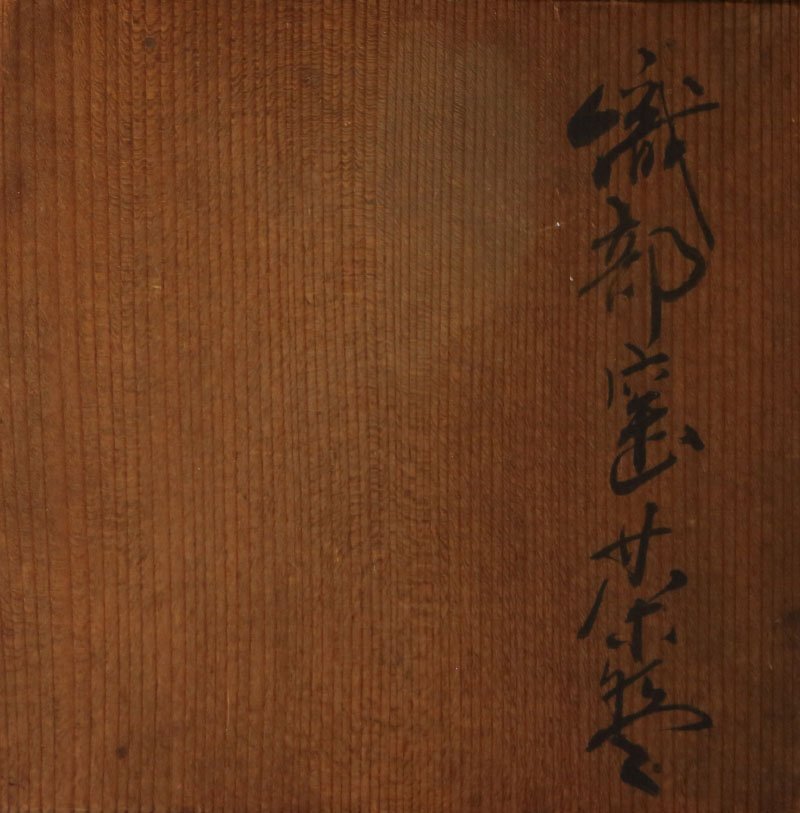 織部窯茶盌